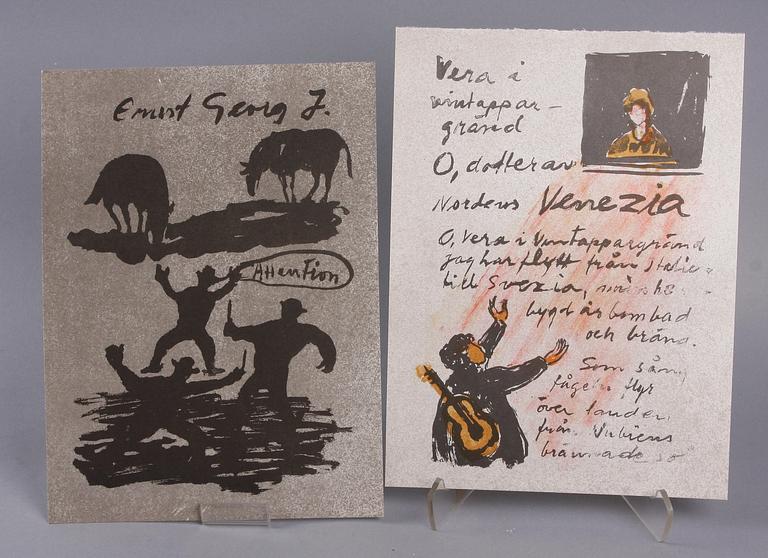 Ernst Georg J.
Attention
Vera i
vintappar-
gränd
O, dotter av
Nordens Venezia
O, Vera i Vintappargränd
jag har flytt från Italien
till Svezia,
bygd är bombad
och bränd.
Som sång
fågeln flyr
över landen
från